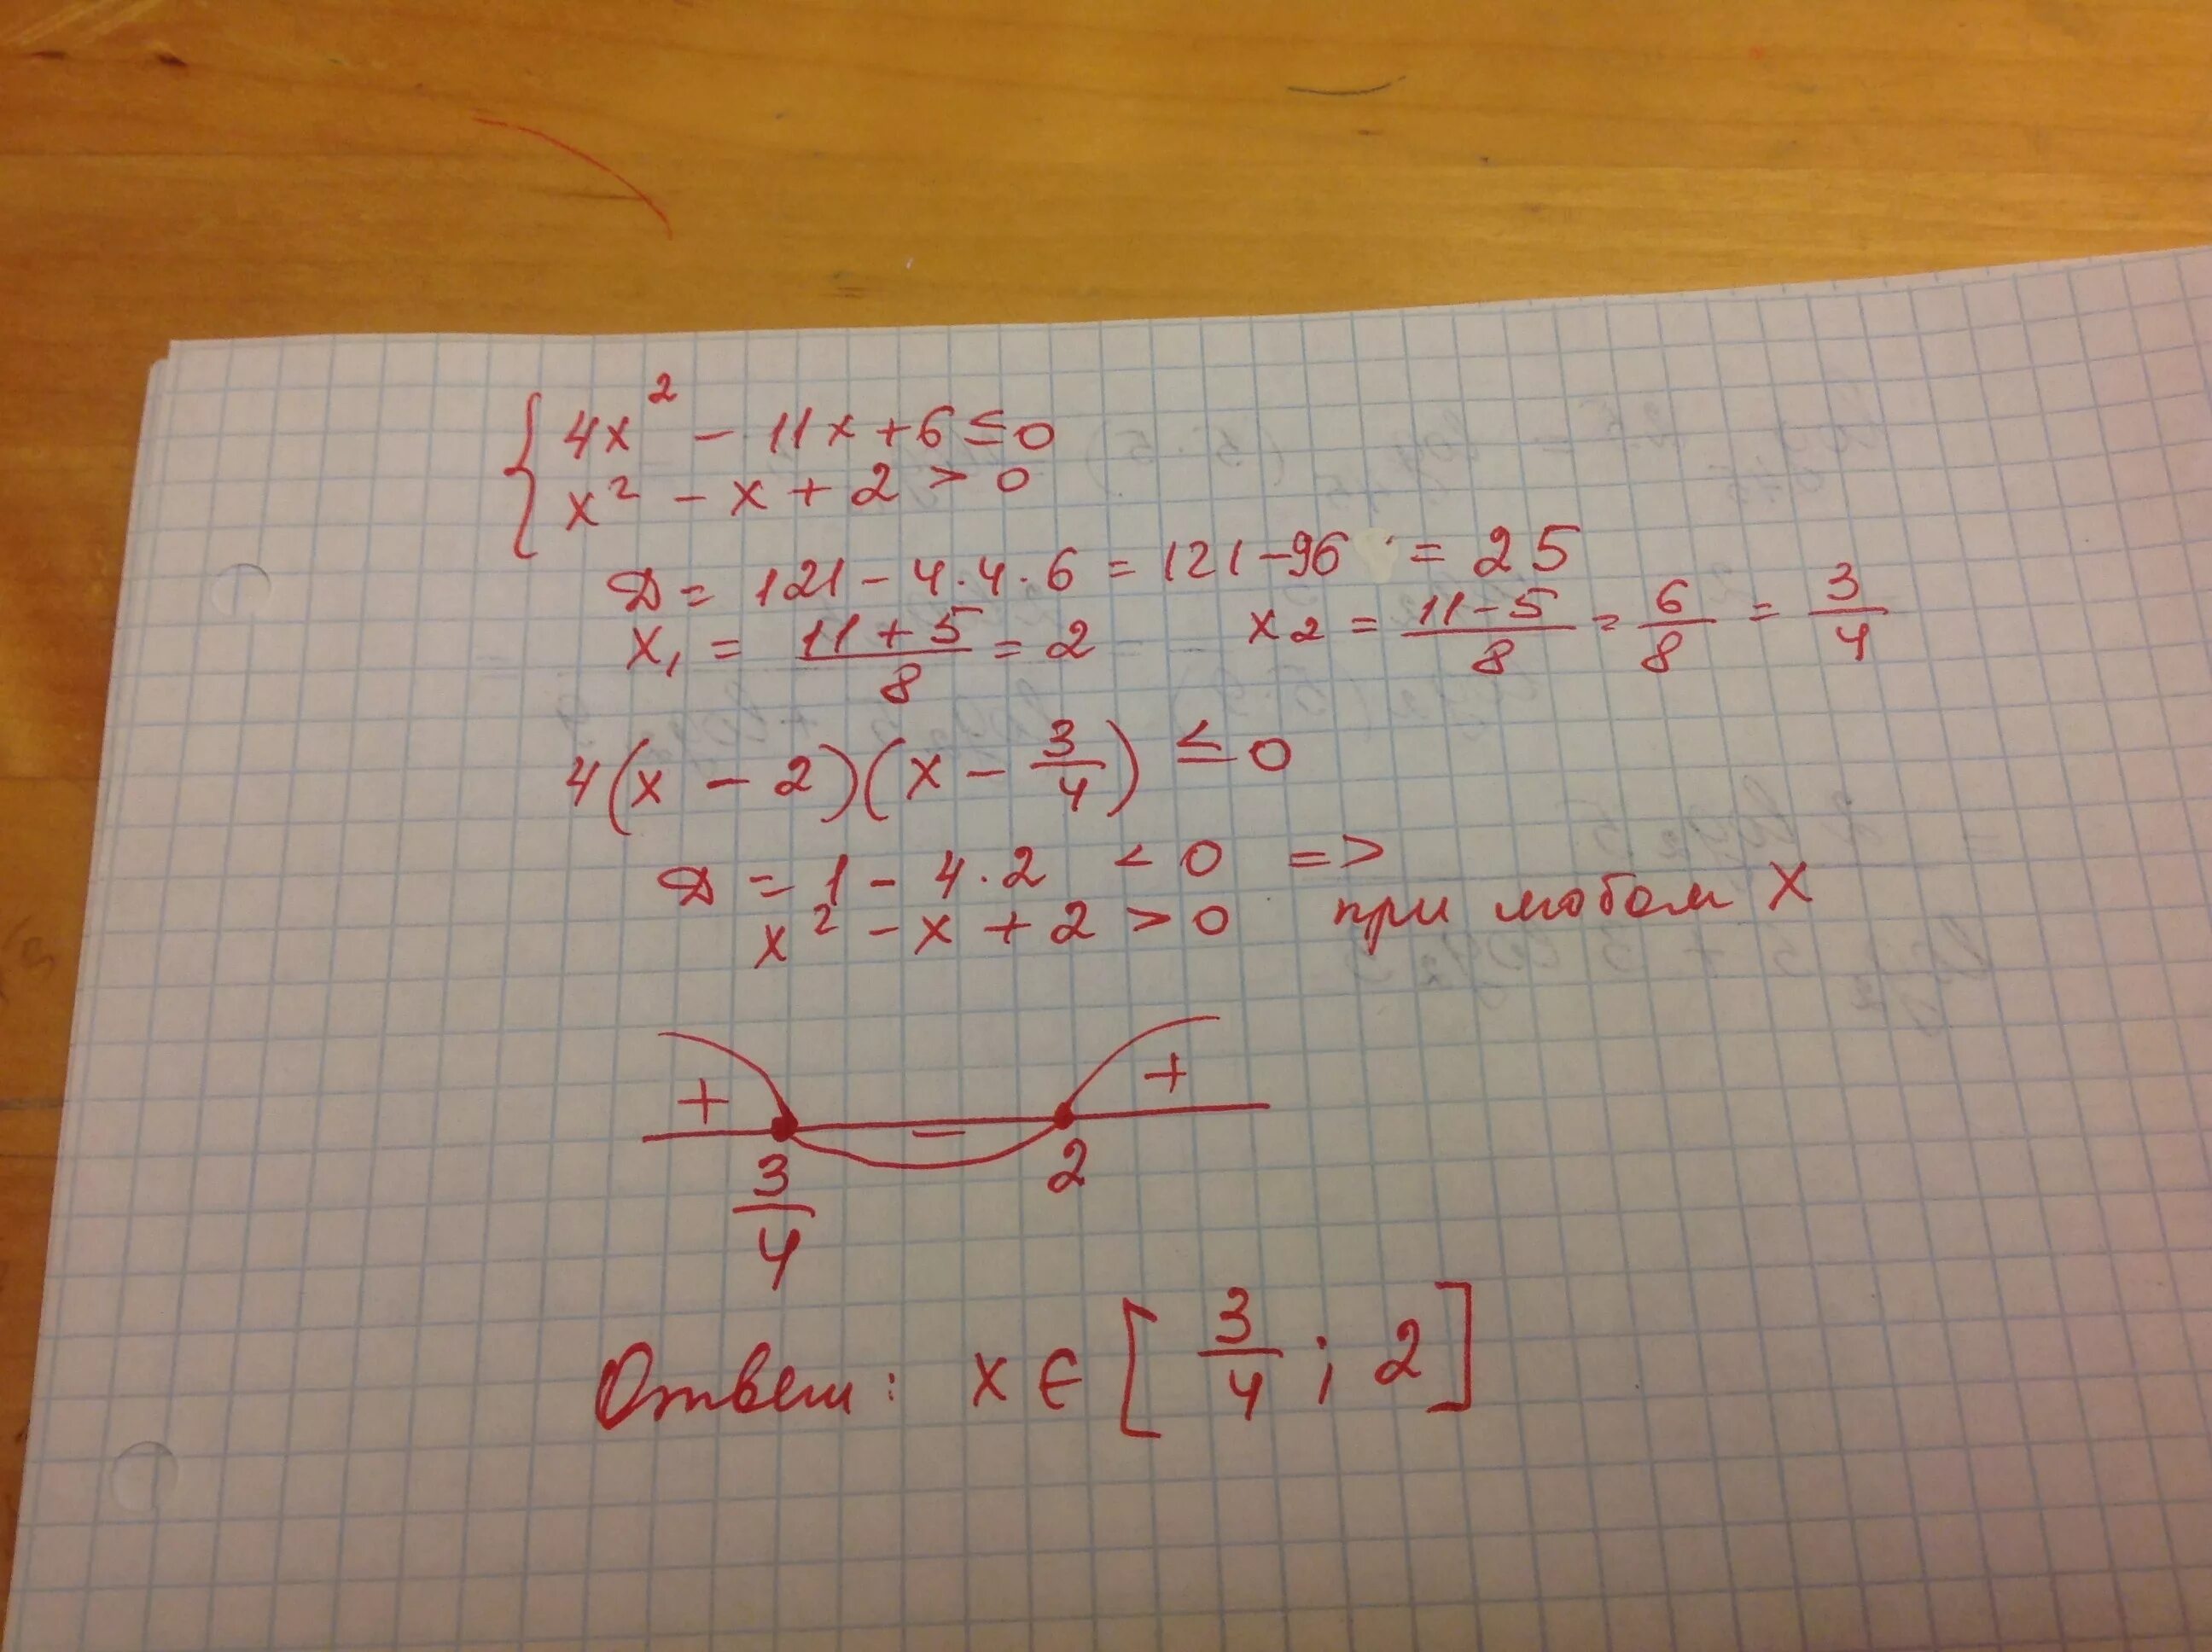 { 4x² - 11x + 6 ≤ 0
x² - x + 2 > 0
D = 121 - 4·4·6 = 121 - 96 = 25
x₁ = (11 + 5)/8 = 2 x₂ = (11 - 5)/8 = 6/8 = 3/4
4(x - 2)(x - 3/4) ≤ 0
D = 1 - 4·2 < 0 =>
x² - x + 2 > 0 при любом X
+ - +
3/4 2
Ответ: x ∈ [3/4; 2]